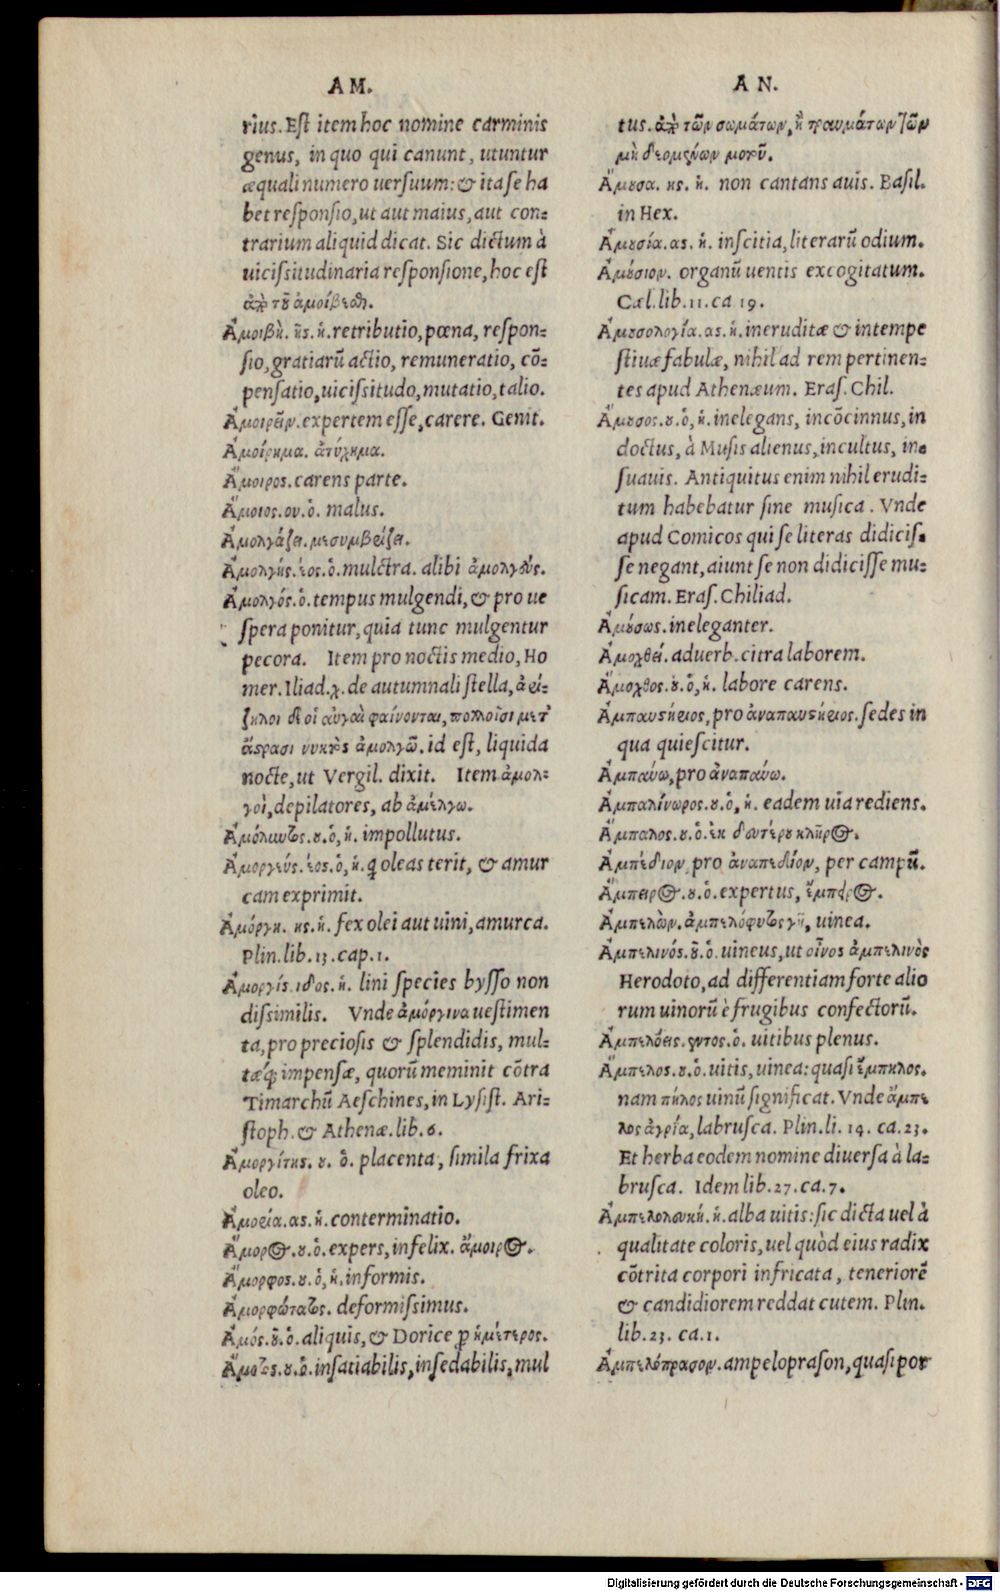 AM.
rius. Est item hoc nomine carminis
genus, in quo qui canunt, utuntur
æquali numero uersuum: & ita se ha
bet responsio, ut aut maius, aut con-
trarium aliquid dicat. Sic dictum à
uicissitudinaria responsione, hoc est
ἀπὸ τοῦ ἀμοίβεσθ.
Ἀμοιβὴ. ῆς. ἡ. retributio, pœna, respon-
sio, gratiarū actio, remuneratio, cō-
pensatio, uicissitudo, mutatio, talio.
Ἀμοιρεῖν. expertem esse, carere. Genit.
Ἀμοίρημα. ἀτύχημα.
Ἄμοιρος. carens parte.
Ἄμοιος. ου. ὁ. malus.
Ἀμολγάζει. μεσυμβρίζει.
Ἀμολγής. έος. ὁ. mulctra. alibi ἀμολγεύς.
Ἀμολγός. ὁ. tempus mulgendi, & pro ue
spera ponitur, quia tunc mulgentur
pecora. Item pro noctis medio, Ho
mer. Iliad. χ. de autumnali stella, ἀρί-
ζηλοι δέ οἱ αὐγαὶ φαίνονται, πολλοῖσι μετ᾽
ἄστρασι νυκτὸς ἀμολγῶ. id est, liquida
nocte, ut Vergil. dixit. Item ἀμολ-
γοὶ, depilatores, ab ἀμέλγω.
Ἀμόλυντος. ου. ὁ, ἡ. impollutus.
Ἀμοργεύς. έος. ὁ, ἡ. q oleas terit, & amur
cam exprimit.
Ἀμόργη. ης. ἡ. fex olei aut uini, amurca.
Plin. lib. 13. cap. 1.
Ἀμοργίς. ιδος. ἡ. lini species bysso non
dissimilis. Vnde ἀμόργινα uestimen
ta, pro preciosis & splendidis, mul-
tæq; impensæ, quorū meminit cōtra
Timarchū Aeschines, in Lysist. Ari-
stoph. & Athenæ. lib. 6.
Ἀμοργίτης. ου. ὁ. placenta, simila frixa
oleo.
Ἀμορία. ας. ἡ. conterminatio.
Ἄμορος. ου. ὁ. expers, infelix. ἄμοιρος.
Ἄμορφος. ου. ὁ, ἡ, informis.
Ἀμορφώτατος. deformissimus.
Ἀμός. οῦ. ὁ. aliquis, & Dorice p ἡμέτερος.
Ἄμοτος. ου. ὁ. insatiabilis, insedabilis, mul
AN.
tus. ἀπὸ τῶν σωμάτων, ἢ τραυμάτων τῶν
μὴ δεομένων μοτοῦ.
Ἄμουσα. ης. ἡ. non cantans auis. Basil.
in Hex.
Ἀμουσία. ας. ἡ. inscitia, literarū odium.
Ἀμούσιον. organū uentis excogitatum.
Cæl. lib. 11. ca 19.
Ἀμουσολογία. ας. ἡ. ineruditæ & intempe
stiuæ fabulæ, nihil ad rem pertinen-
tes apud Athenæum. Eras. Chil.
Ἄμουσος. ου. ὁ, ἡ. inelegans, incōcinnus, in
doctus, à Musis alienus, incultus, in-
suauis. Antiquitus enim nihil erudi-
tum habebatur sine musica. Vnde
apud Comicos qui se literas didicis-
se negant, aiunt se non didicisse mu-
sicam. Eras. Chiliad.
Ἀμούσως. ineleganter.
Ἀμοχθεί. aduerb. citra laborem.
Ἄμοχθος. ου. ὁ, ἡ. labore carens.
Ἀμπαυστήριος, pro ἀναπαυστήριος. sedes in
qua quiescitur.
Ἀμπαύω, pro ἀναπαύω.
Ἀμπαλίνωρος. ου. ὁ, ἡ. eadem uia rediens.
Ἄμπαλος. ου. ὁ. ἐκ δευτέρου κλῆρος.
Ἀμπέδιον pro ἀναπεδίον, per campū.
Ἄμπειρος. ου. ὁ. expertus, ἔμπειρος.
Ἀμπελὼν. ἀμπελόφυτος γῆ, uinea.
Ἀμπελινός. οῦ. ὁ. uineus, ut οἶνος ἀμπελινὸς
Herodoto, ad differentiam forte alio
rum uinorū è frugibus confectorū.
Ἀμπελόεις. εντος. ὁ. uitibus plenus.
Ἄμπελος. ου. ὁ. uitis, uinea: quasi ἔμπηλος.
nam πήλος uinū significat. Vnde ἄμπε
λος ἀγρία, labrusca. Plin. li. 14. ca. 23.
Et herba eodem nomine diuersa à la-
brusca. Idem lib. 27. ca. 7.
Ἀμπελολευκή. ἡ. alba uitis: sic dicta uel à
qualitate coloris, uel quòd eius radix
cōtrita corpori infricata, teneriorē
& candidiorem reddat cutem. Plin.
lib. 23. ca. 1.
Ἀμπελόπρασον. ampeloprason, quasi por
Digitalisierung gefördert durch die Deutsche Forschungsgemeinschaft - DFG